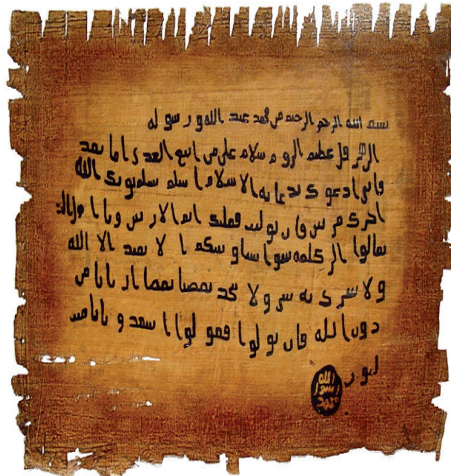 بسم الله الرحمن الرحيم من محمد عبد الله ورسوله
الى هرقل عظيم الروم سلام على من اتبع الهدى اما بعد
فانى ادعوك بدعاية الاسلام اسلم تسلم يوتك الله
اجرك مرتين فان توليت فعليك اثم الاريسين ويا اهل الكتاب
تعالوا الى كلمة سوا بيننا وبينكم الا نعبد الا الله
ولا نشرك به شيا ولا يتخذ بعضنا بعضا اربابا من
دون الله فان تولوا فقولوا اشهدوا بانا مسـ
لمون
الله
رسول
محمد